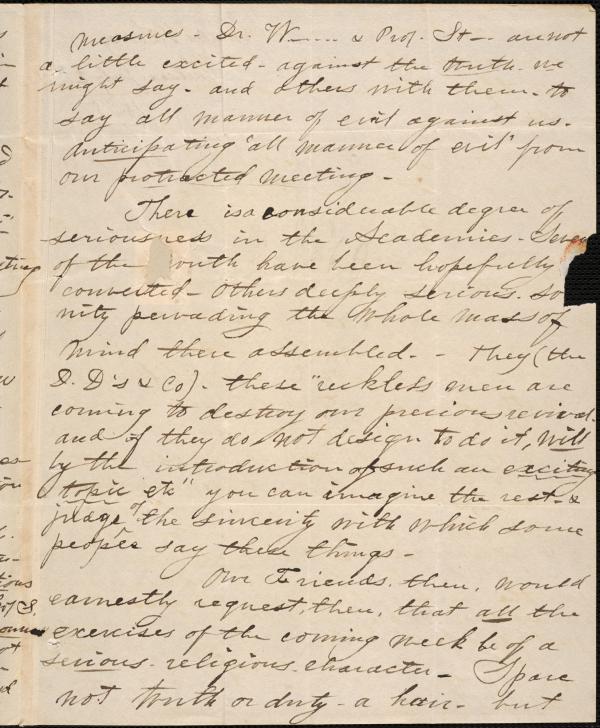 measures - Dr. W---- & Prof. St-- are not
a little excited - against the truth we
might say - and others with them - to
say all manner of evil against us -
anticipating "all manner of evil" from
our protracted meeting -
There is a considerable degree of
seriousness in the Academies -
of the youth have been hopefully
converted - Others deeply serious. so
nity pervading the whole mass of
mind there assembled. - They (the
D. D's & Co). these "reckless men are
coming to destroy our precious revival -
and if they do not design to do it, will
by the introduction of such an exciting
topic etc" you can imagine the rest - &
judge of the sincerity with which some
people say these things -
Our Friends, then, would
earnestly request, then, that all the
exercises of the coming week be of a
serious - religious character - Spare
not truth or duty - a hair - but